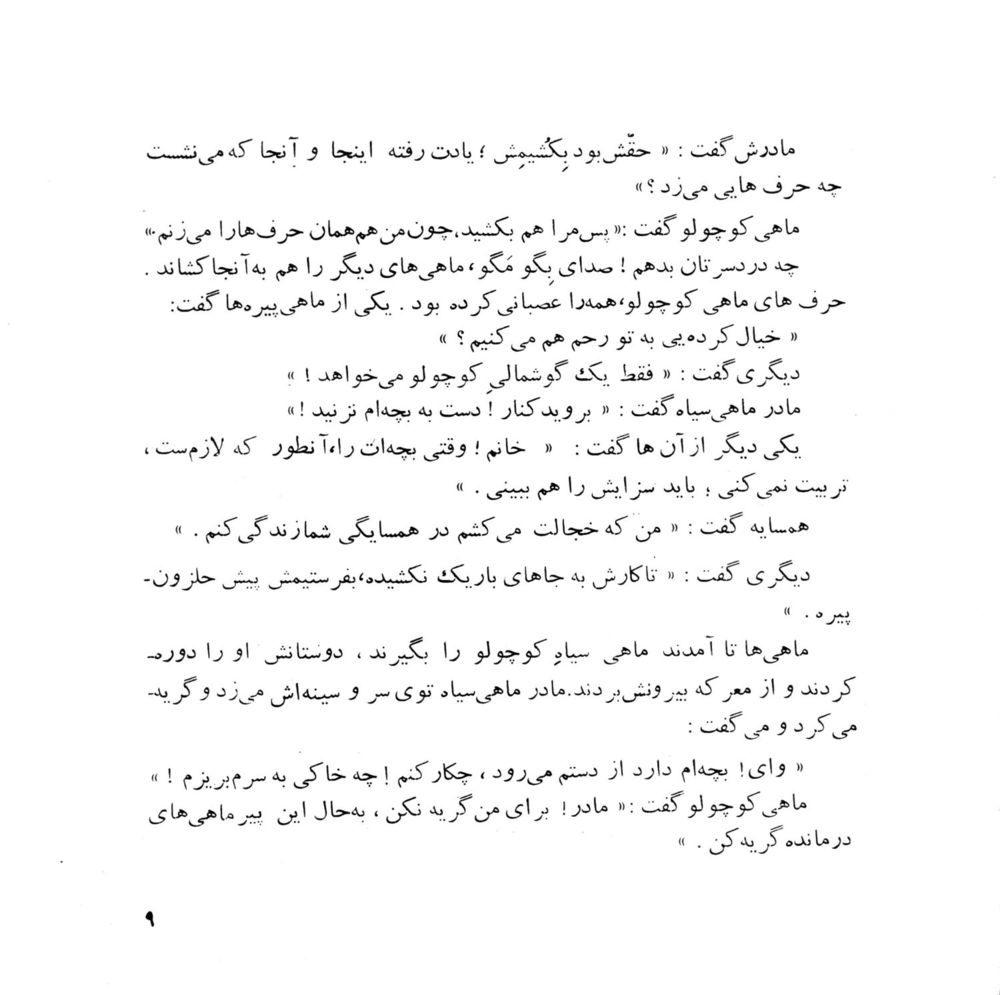 مادرش گفت : « حقّش بود بِکُشیمِش ؛ یادت رفته اینجا و آنجا که می‌نشست
چه حرف هایی می‌زد ؟ »
ماهی کوچولو گفت : « پس مرا هم بکشید، چون من هم همان حرف‌ها را می‌زنم . »
چه دردسرتان بدهم ! صدای بِگو مَگو، ماهی‌های دیگر را هم به آنجا کشاند .
حرف های ماهی کوچولو، همه را عصبانی کرده بود . یکی از ماهی پیره‌ها گفت :
« خیال کرده‌یی به تو رحم هم می‌کنیم ؟ »
دیگری گفت : « فقط یک گوشمالیِ کوچولو می‌خواهد ! »
مادر ماهی سیاه گفت : « بروید کنار ! دست به بچه‌ام نزنید ! »
یکی دیگر از آن ها گفت : « خانم ! وقتی بچه‌ات را، آنطور که لازم‌ست ،
تربیت نمی‌کنی ، باید سزایش را هم ببینی . »
همسایه گفت : « من که خجالت می‌کشم در همسایگی شما زندگی کنم . »
دیگری گفت : « تا کارش به جاهای باریک نکشیده، بفرستیمش پیش حلزون-
پیره . »
ماهی‌ها تا آمدند ماهی سیاهِ کوچولو را بگیرند ، دوستانش او را دوره-
کردند و از معرکه بیرونش بردند. مادر ماهی سیاه توی سر و سینه‌اش می‌زد و گریه-
می‌کرد و می‌گفت :
« وای ! بچه‌ام دارد از دستم می‌رود ، چکار کنم ! چه خاکی به سرم بریزم ! »
ماهی کوچولو گفت : « مادر ! برای من گریه نکن ، به‌حال این پیر ماهی‌های
درمانده گریه کن . »
۹